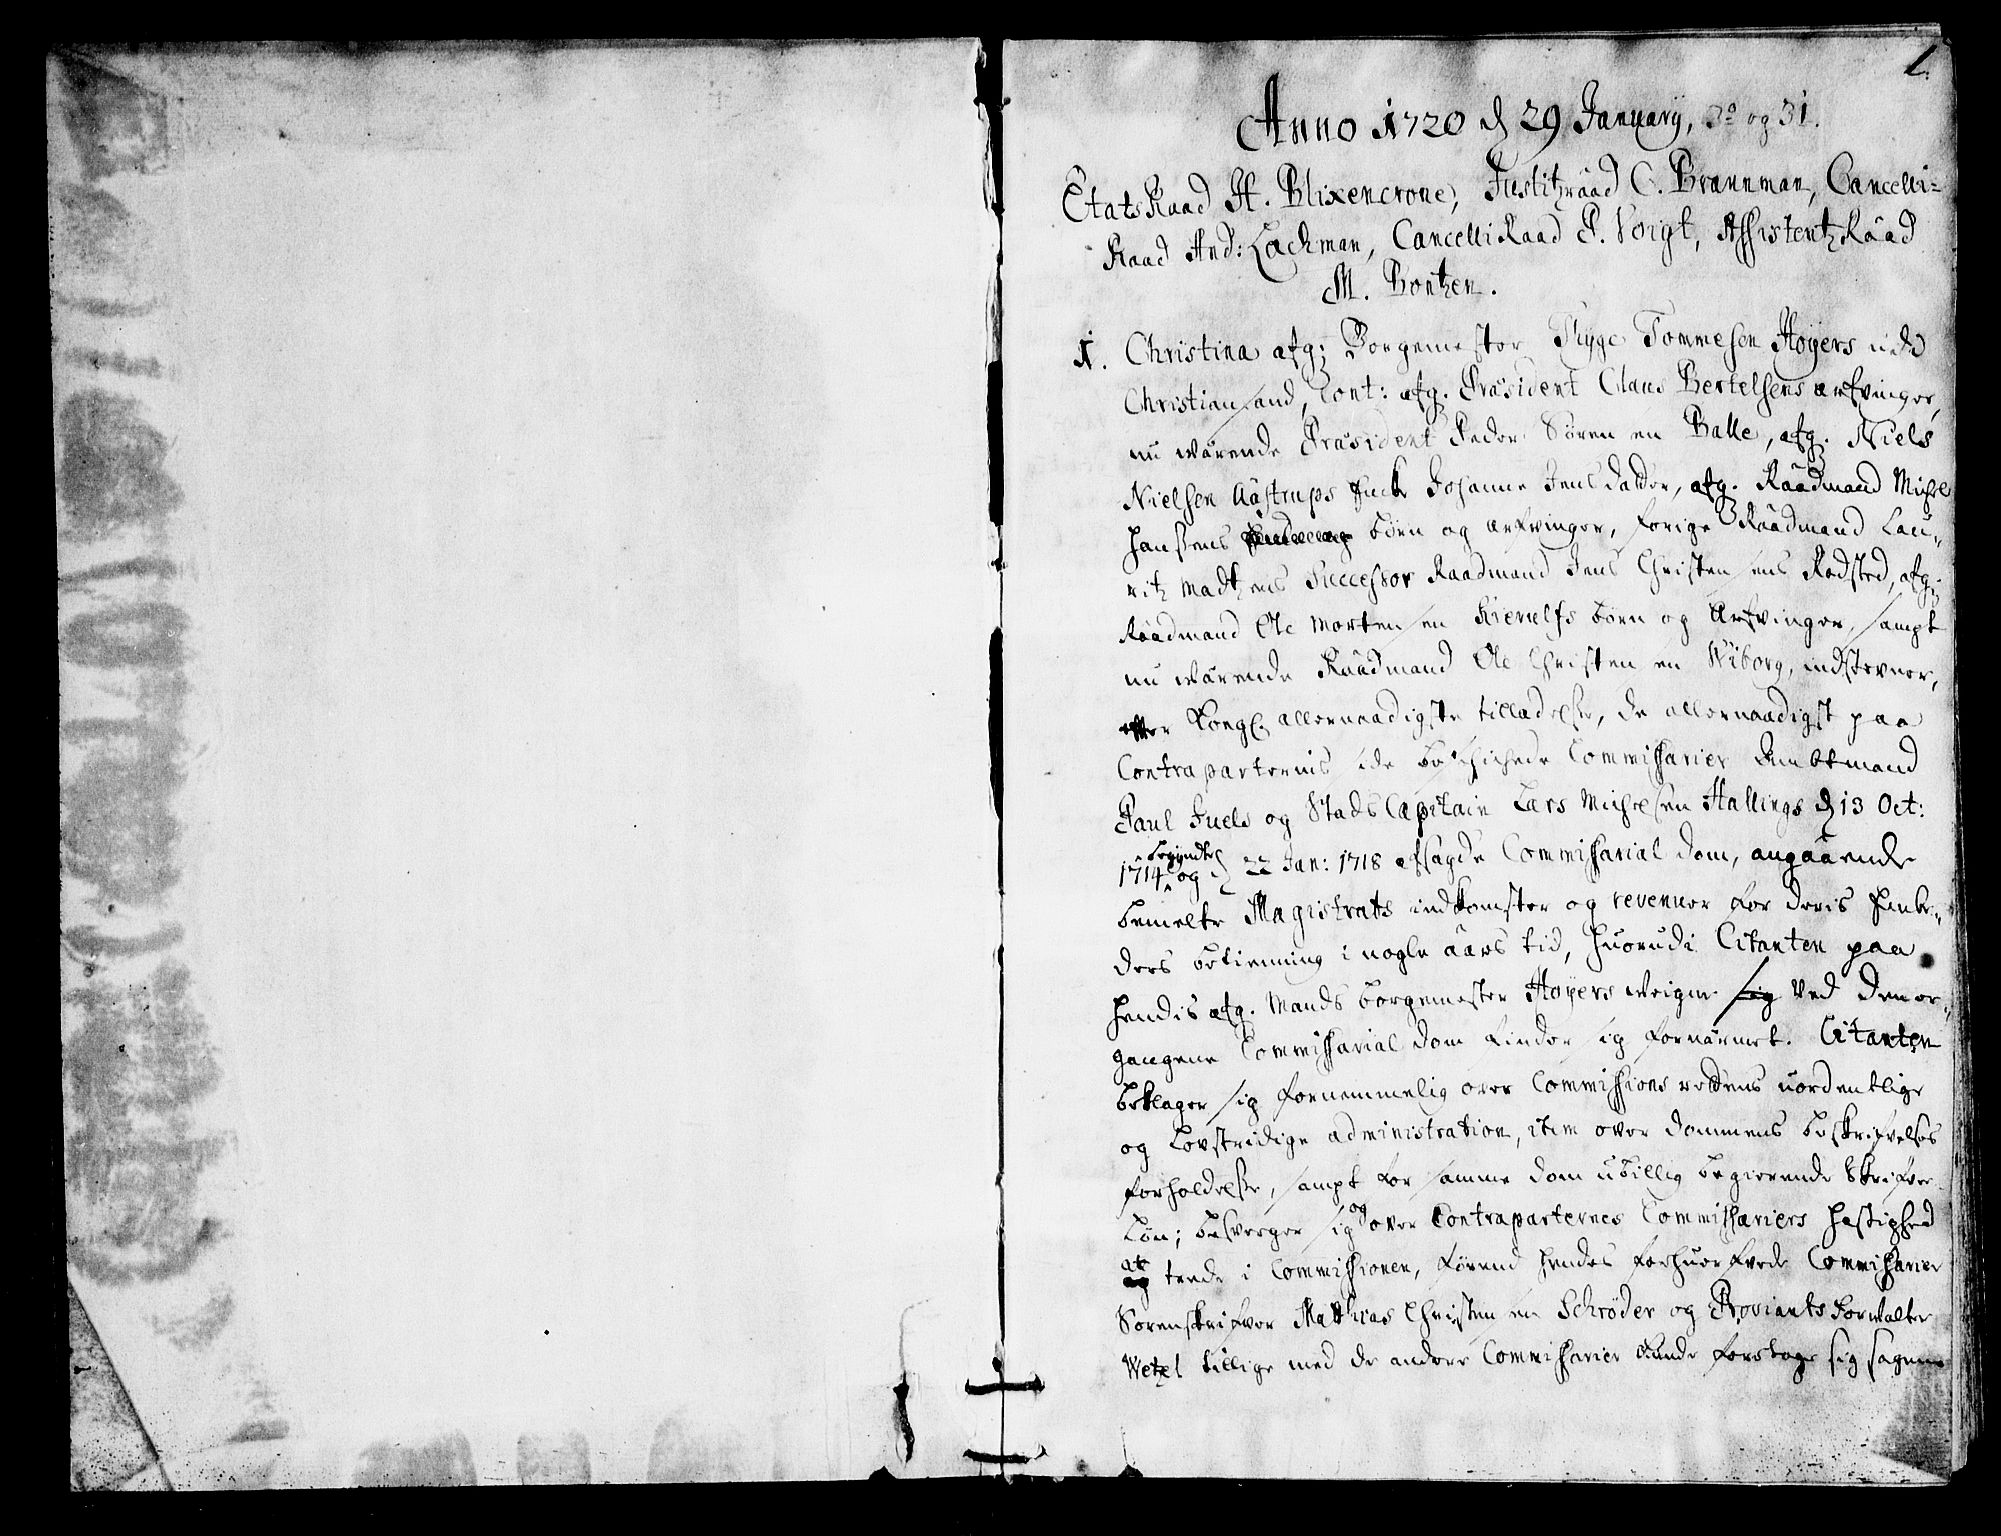 1.
Anno 1720 d 29 January, 30 og 31.
Etats Raad H. Blixencrone, Justitzraad C. Brannman, Cancelli=
Raad And: Lachman, CancelliRaad P. Voigt, AssistentzRaad
M. Bontzen.
1. Christina afg: Borgemester Thyge Tommesen Høyers udi
Christiansand, Cont: afg. Præsident Claus Bertelsens arfvinger,
nu wærende Præsident Peder Sørensen Balle, afg. Niels
Nielsen Aastrups Encke Johanne Jens datter, afg. Raadmand Michel
Hansens børn og arfvinger, forige Raadmand Lau„
ritz Madtzens Successor Raadmand Jens Christensens Rødsted, afg.
Raadmand Ole Mortensen Kierulfs børn og Arfvinger, sampt
nu wærende Raadmand Ole Christensen Wiborg, indstevner,
efter Kongl. allernaadigste tilladelse, de allernaadigst paa
Contraparternis side beschichede Commissarier Ambtmand
Paul Juels og StadsCapitain Lars Michelsen Hallings d 13 Oct:
1714 begyndte og d 22 Jan: 1718 afsagde Commissarial dom, angaaende
bemelte Magistrats indkomster og revenuer for deris Embe„
ders betienning i nogle aars tid, huorudi Citanten paa
hendis afg. Mands borgemester Høyers weigne sig ved den er„
gangene Commissarial dom finder sig fornærmet. Citanten
beklager sig fornemmelig over Commissions rettens uordentlige
og lovstridige administration, item over dommens beskrifvelses
forholdelse, sampt for samme dom ubillig begierende Skrifver
løn; besverger sig og over Contraparternes Commissariers hastighed
at trede i Commissionen, førend hendes forhuerfvede Commissarier
Sorenskrifver Matthias Christensen Schrøder og Proviantsforwalter
Wetzel tillige med de andere Commissarier kunde foretage sig sagens